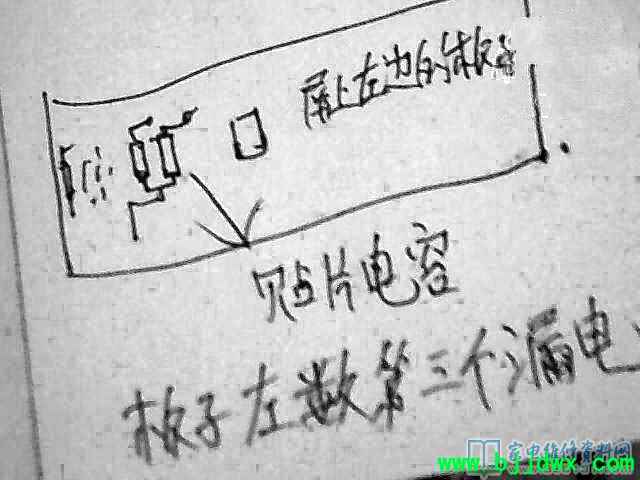 屏上左边的板子
贴片电容
板子左数第三个漏电
家电维修资料网
www.bjjdwx.com